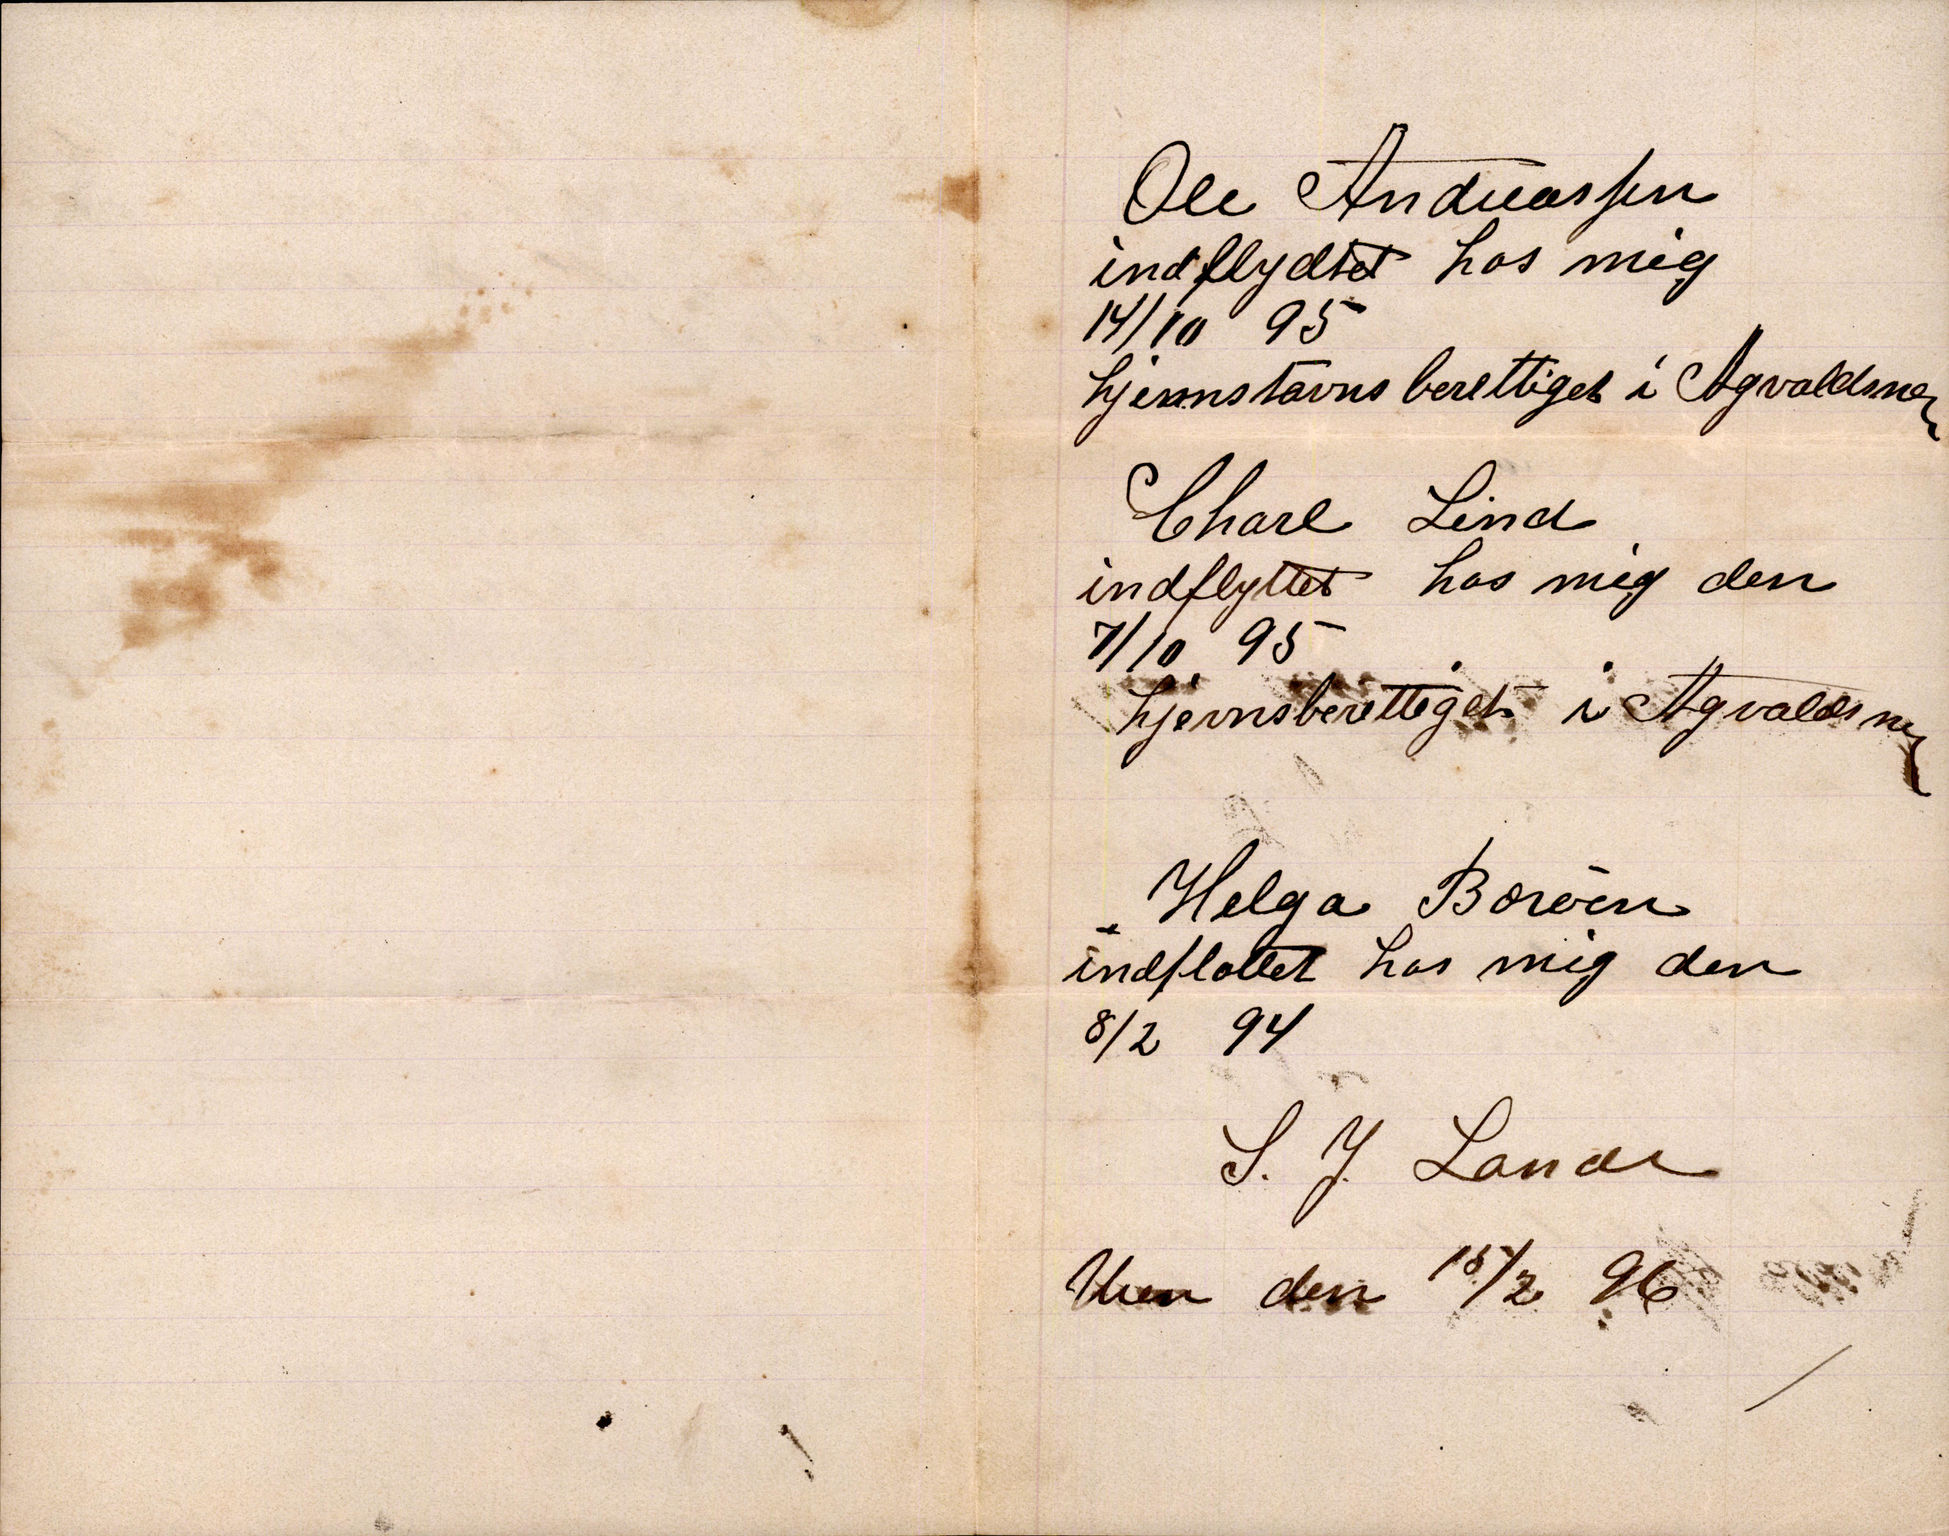 Ole Andreassen
indflydtet hos mig
14/10 95
hjemstavnsberettiget i Agvaldsnes
Charl Lind
indflyttet hos mig den
7/10 95
hjevnsberettiget i Agvaldsnes
Helga Borøen
indflottet hos mig den
8/2 94
S. J. Lande
den 15/2 96